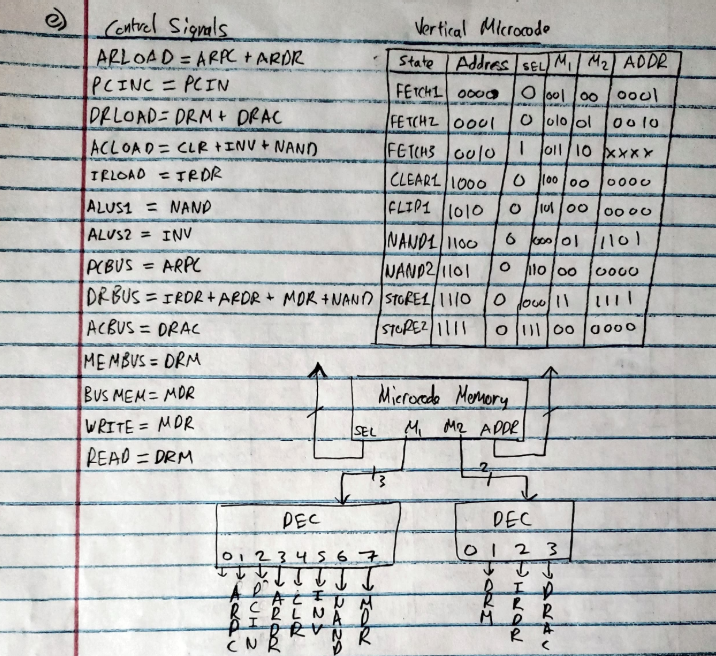 e) Control Signals
ARLOAD = ARPC + ARDR
PCINC = PCIN
DRLOAD = DRM + DRAC
ACLOAD = CLR + INV + NAND
IRLOAD = IRDR
ALUS1 = NAND
ALUS2 = INV
PCBUS = ARPC
DRBUS = IRDR + ARDR + MDR + NAND
ACBUS = DRAC
MEMBUS = DRM
BUSMEM = MDR
WRITE = MDR
READ = DRM
Vertical Microcode
State Address SEL M1 M2 ADDR
FETCH1 0000 0 001 00 0001
FETCH2 0001 0 010 01 0010
FETCH3 0010 1 011 10 XXXX
CLEAR1 1000 0 100 00 0000
FLIP1 1010 0 101 00 0000
NAND1 1100 0 000 01 1101
NAND2 1101 0 110 00 0000
STORE1 1110 0 000 11 1111
STORE2 1111 0 111 00 0000
Microcode Memory
SEL M1 M2 ADDR
3
2
DEC
0 1 2 3 4 5 6 7
ARPC
PCIN
ARDR
CLR
INV
NAND
MDR
DEC
0 1 2 3
DRM
IRDR
DRAC